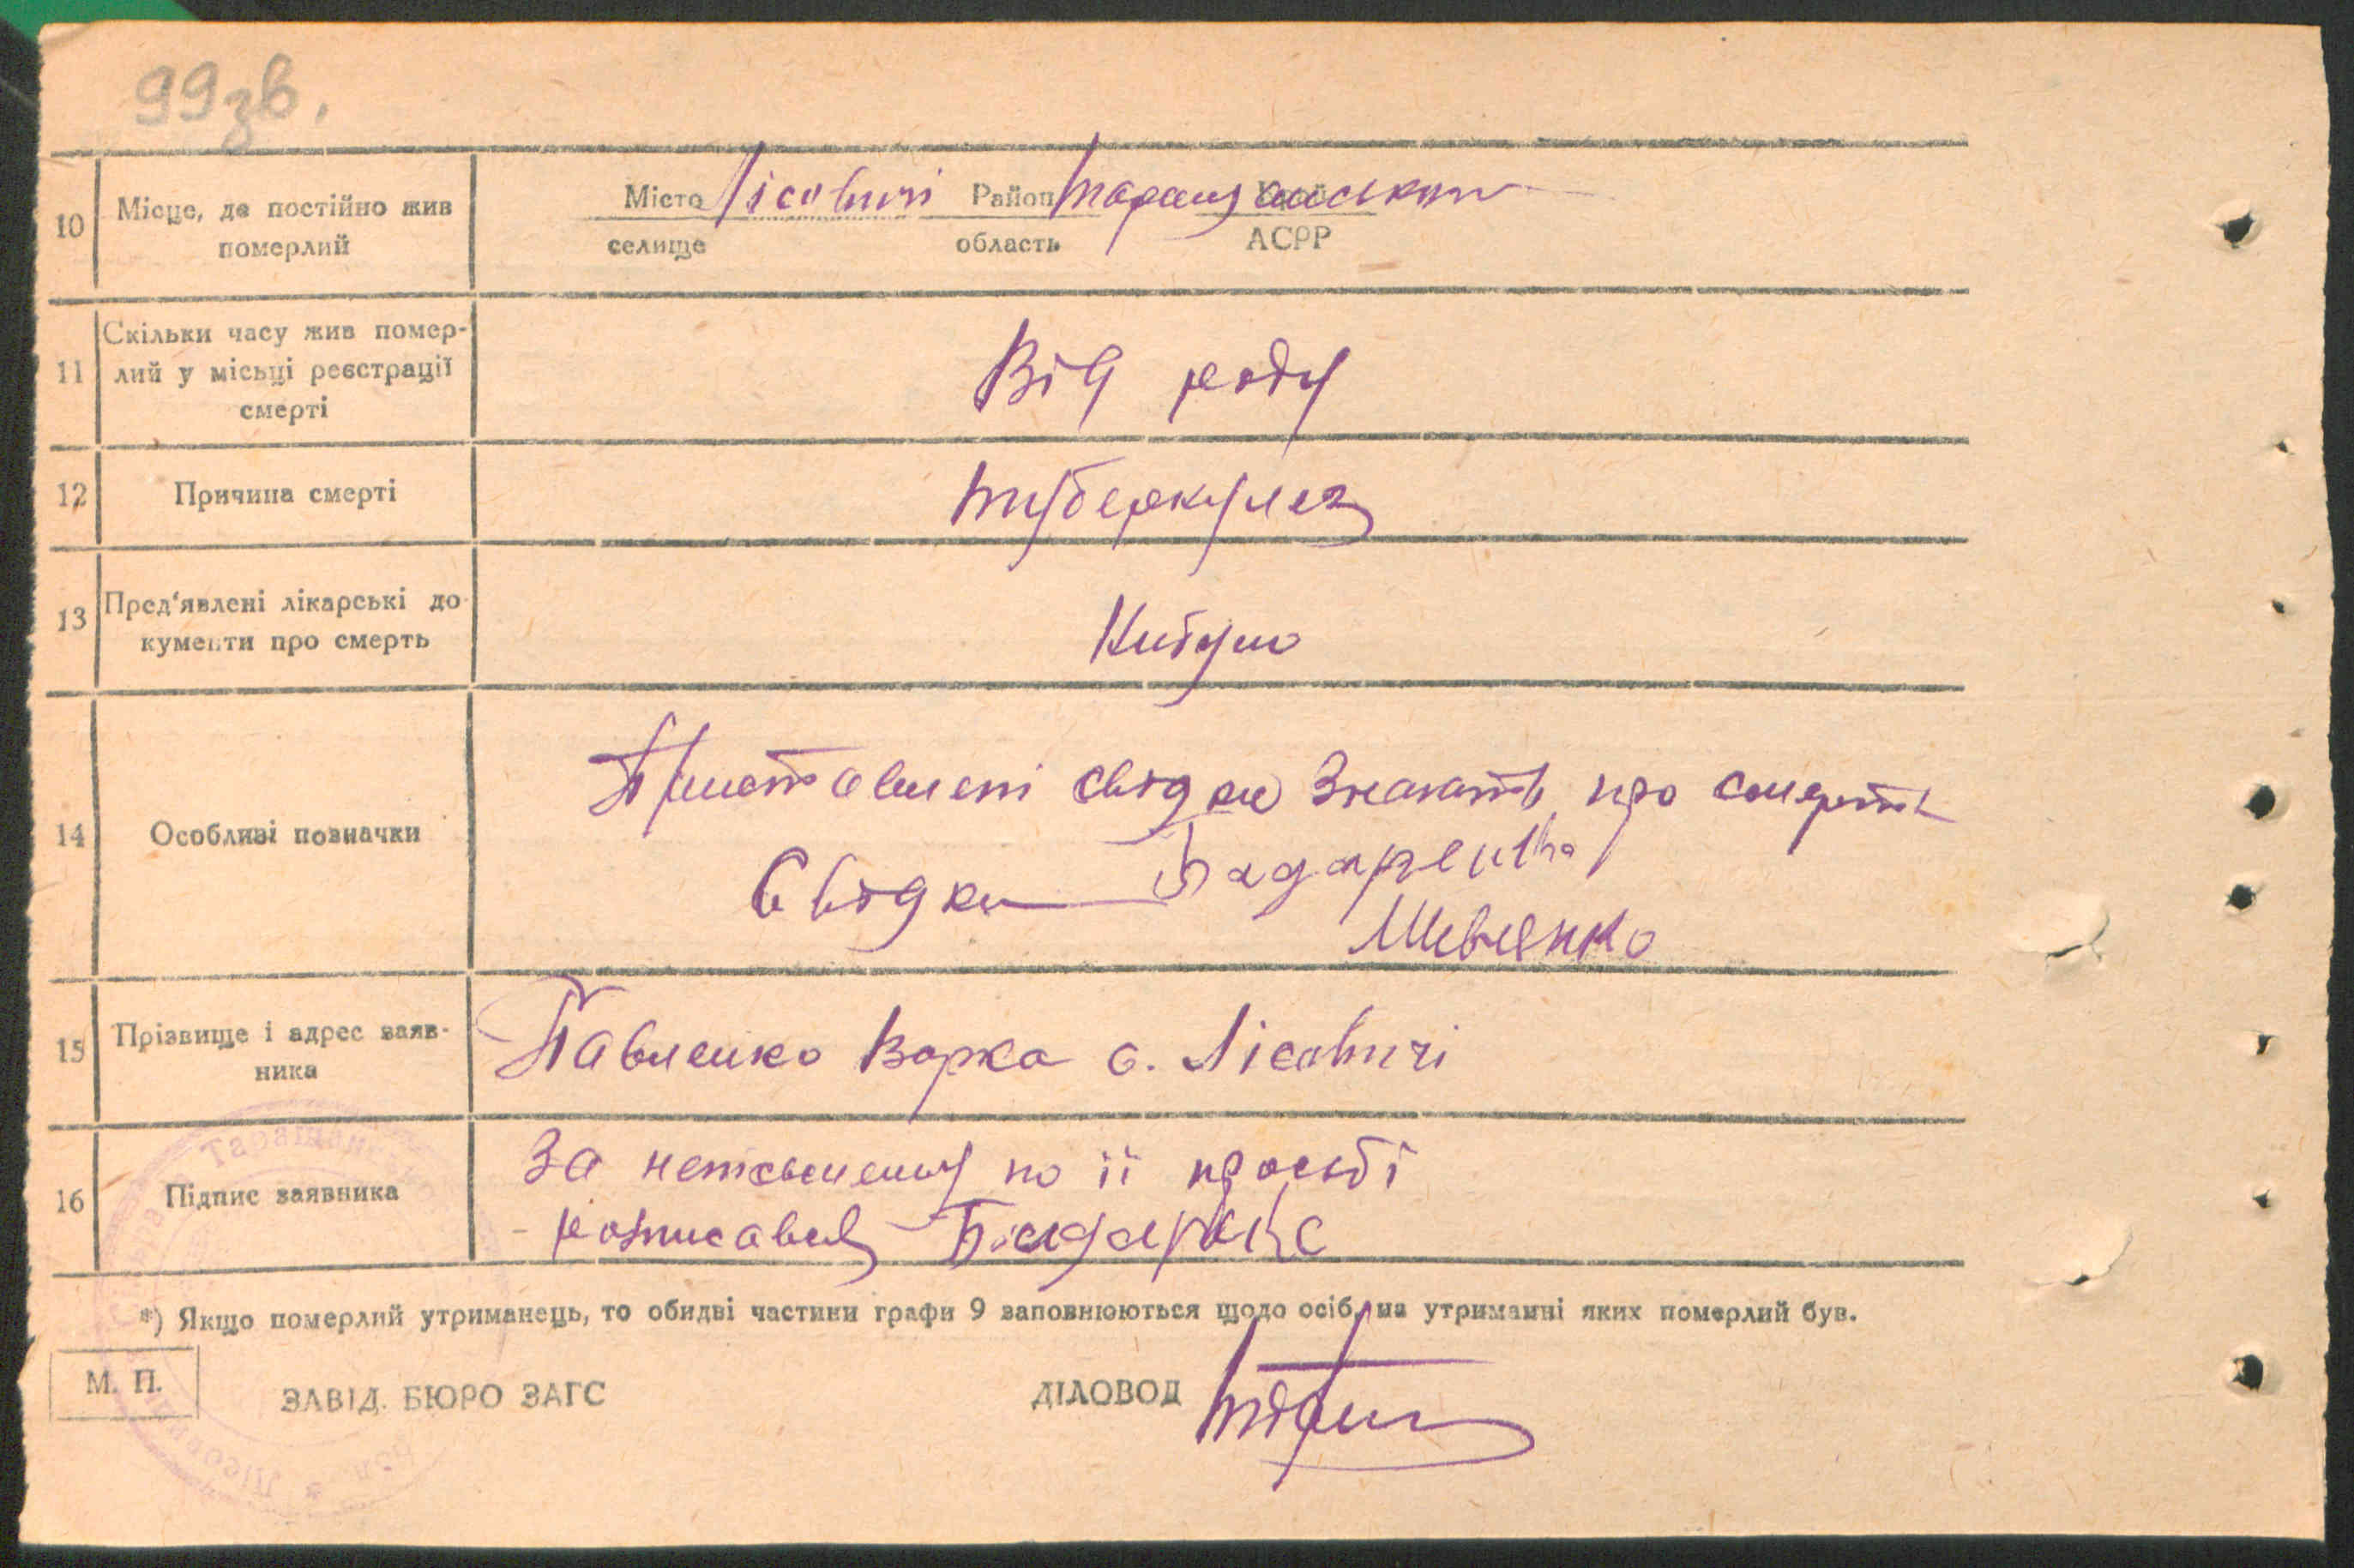 99зв.
10 Місце, де постійно жив померлий
Місто Лісовичі Район Таращанський Край
селище область АСРР
11 Скільки часу жив помер-
лий у місьці реєстрації
смерті
Від роду
12 Причина смерті
туберкулез
13 Пред'явлені лікарські до
кументи про смерть
Кибуло
14 Особливі позначки
свідки знають про смерть
Свідки
Шевченко
15 Прізвище і адрес заяв-
ника
Павленко Варка с. Лісовичі
16 Підпис заявника
За неписьменну по її просьбі
розписавсь
*) Якщо померлий утриманець, то обидві частини графи 9 заповнюються щодо осіб, на утриманні яких померлий був.
М. П.
ЗАВІД. БЮРО ЗАГС
ДІЛОВОД